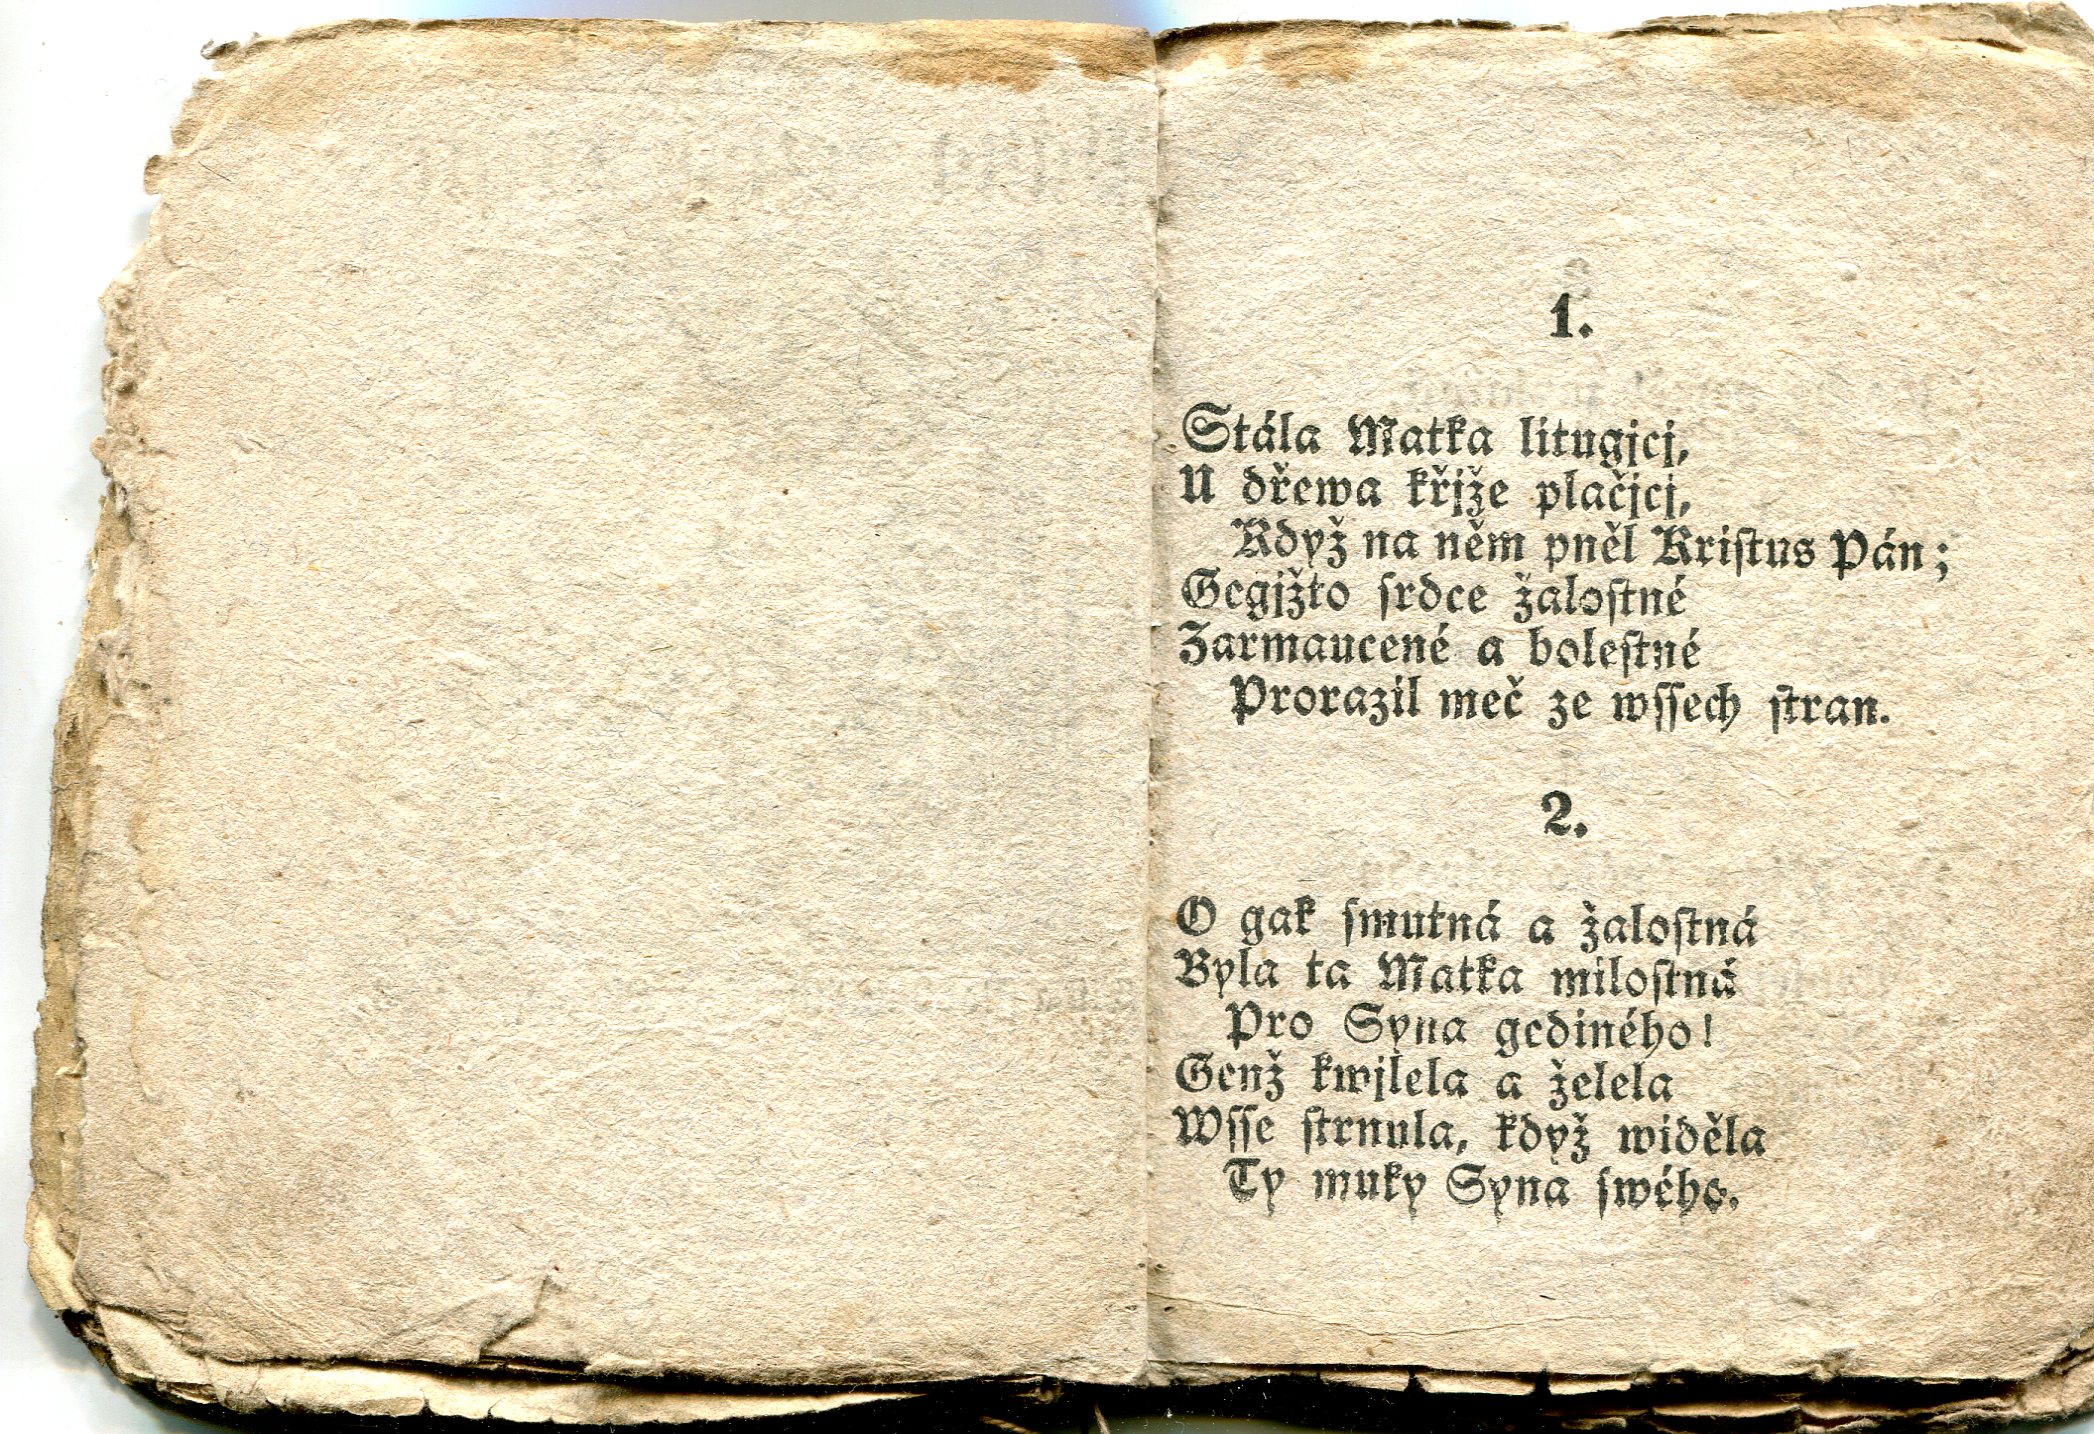 1.
Stála Matka litugjcj,
U dřewa křjže plačjcj,
Když na něm pněl Kristus Pán;
Gegjžto srdce žalostné
Zarmaucené a bolestné
Prorazil meč ze wssech stran.
2.
O gak smutná a žalostná
Byla ta Matka milostná
Pro Syna gediného!
Genž kwjlela a želela
Wsse strnula, když widěla
Ty muky Syna swého.